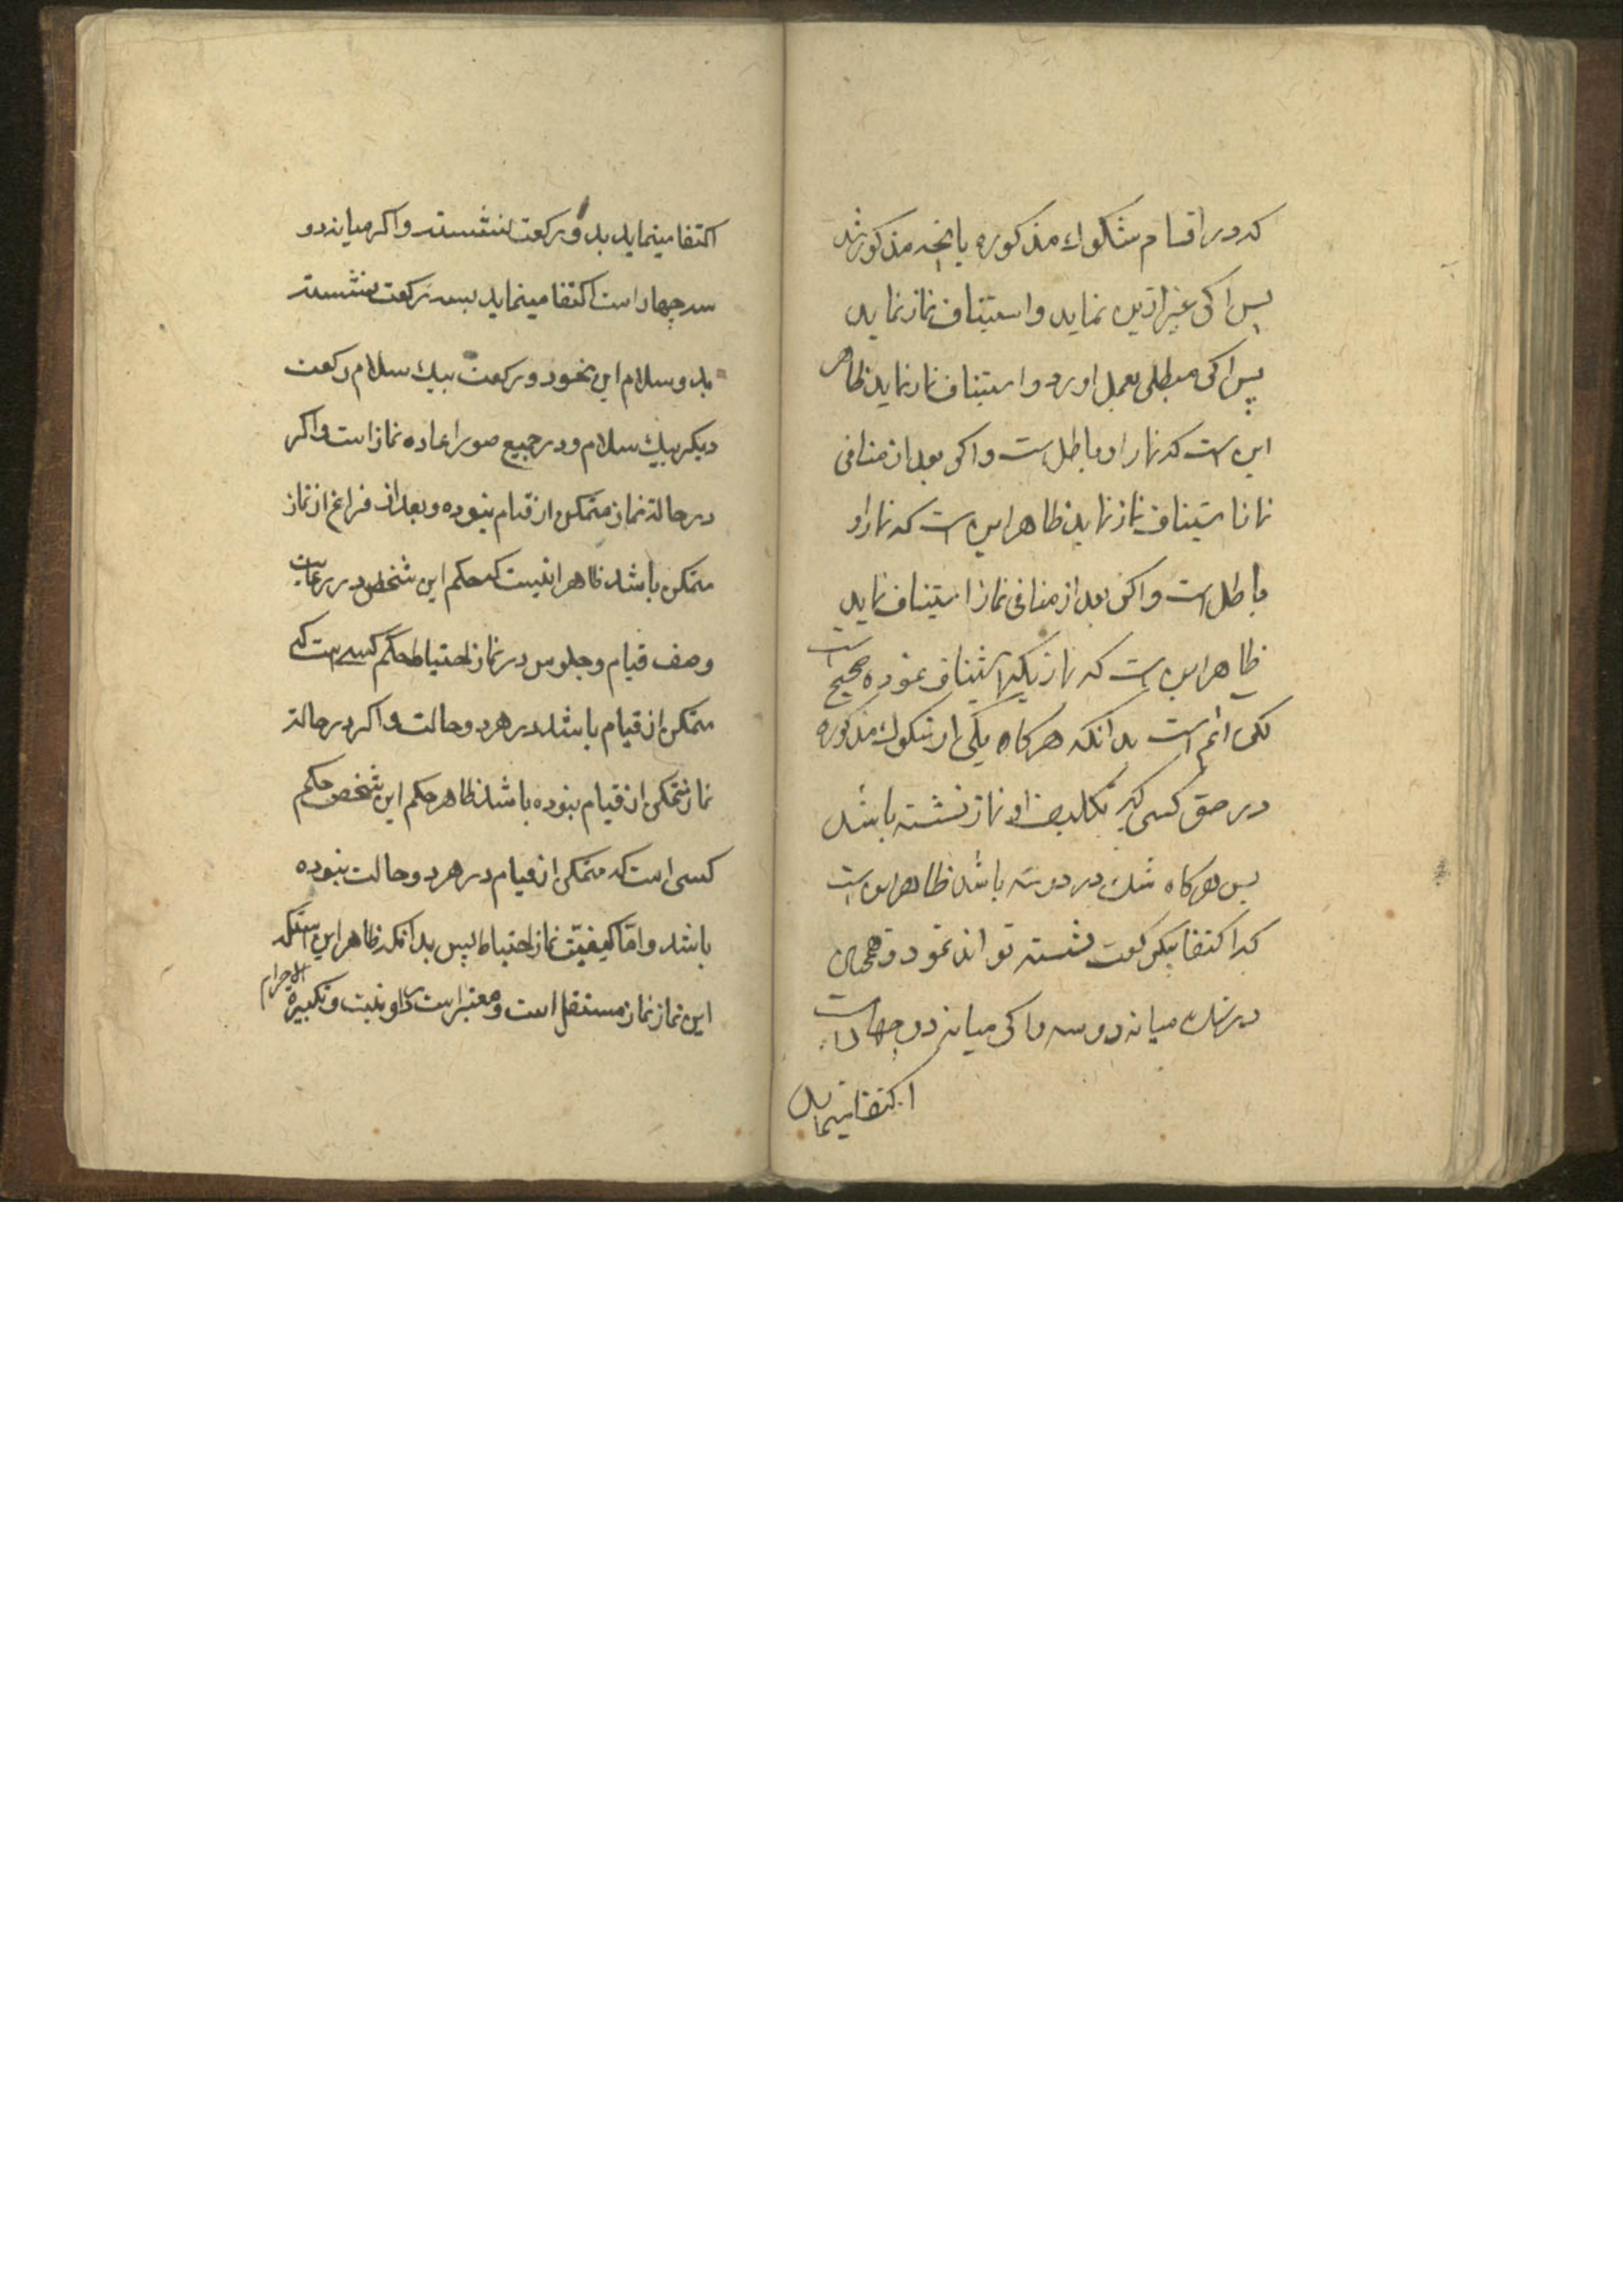 که در اقسام شکوک مذکوره بانچه مذکور شد
پس اکر غیر ازین نماید و استیناف نماز نماید
پس اکر مبطلی بعمل اورد و استیناف نماز نماید ظاهر
این است که نماز او باطل است و اکر بعد از منافی
نماز استیناف نماز نماید ظاهر این است که نماز او
باطل است و اکر بعد از منافی نماز استیناف نماید
ظاهر این است که نمازیکه استیناف نموده صحیح است
لکن اثم است بدانکه هرکاه یکی از شکوک مذکوره
در حق کسی که تکلیف او نماز نشسته باشد
پس هرکاه شک در دو سه باشد ظاهر این است
که اکتفا بیکرکعت نشسته تواند نمود و همچنین
در شک میانه دو سه و اکر میانه دو چهار است
اکتفا مینماید
اکتفا مینماید بدو رکعت نشسته و اکر میانه دو
سه چهار است اکتفا مینماید بسه رکعت نشسته
بدو سلام این نحو دو رکعت بیک سلام رکعت
دیکر بیک سلام و در جمیع صور اعاده نماز است و اکر
در حالة نماز متمکن از قیام نبوده و بعد از فراغ از نماز
متمکن باشد ظاهر اینست که حکم این شخص در رعایت
وصف قیام و جلوس در نماز احتیاط حکم کسی است که
متمکن از قیام باشد در هر دو حالت و اکر در حالة
نماز متمکن از قیام نبوده باشد ظاهر حکم این شخص حکم
کسی است که متمکن از قیام در هر دو حالت نبوده
باشد و امّا کیفیّت نماز احتیاط پس بدانکه ظاهر این استکه
این نماز نماز مستقل است و معتبر است در او نیت و تکبیرة الاحرام